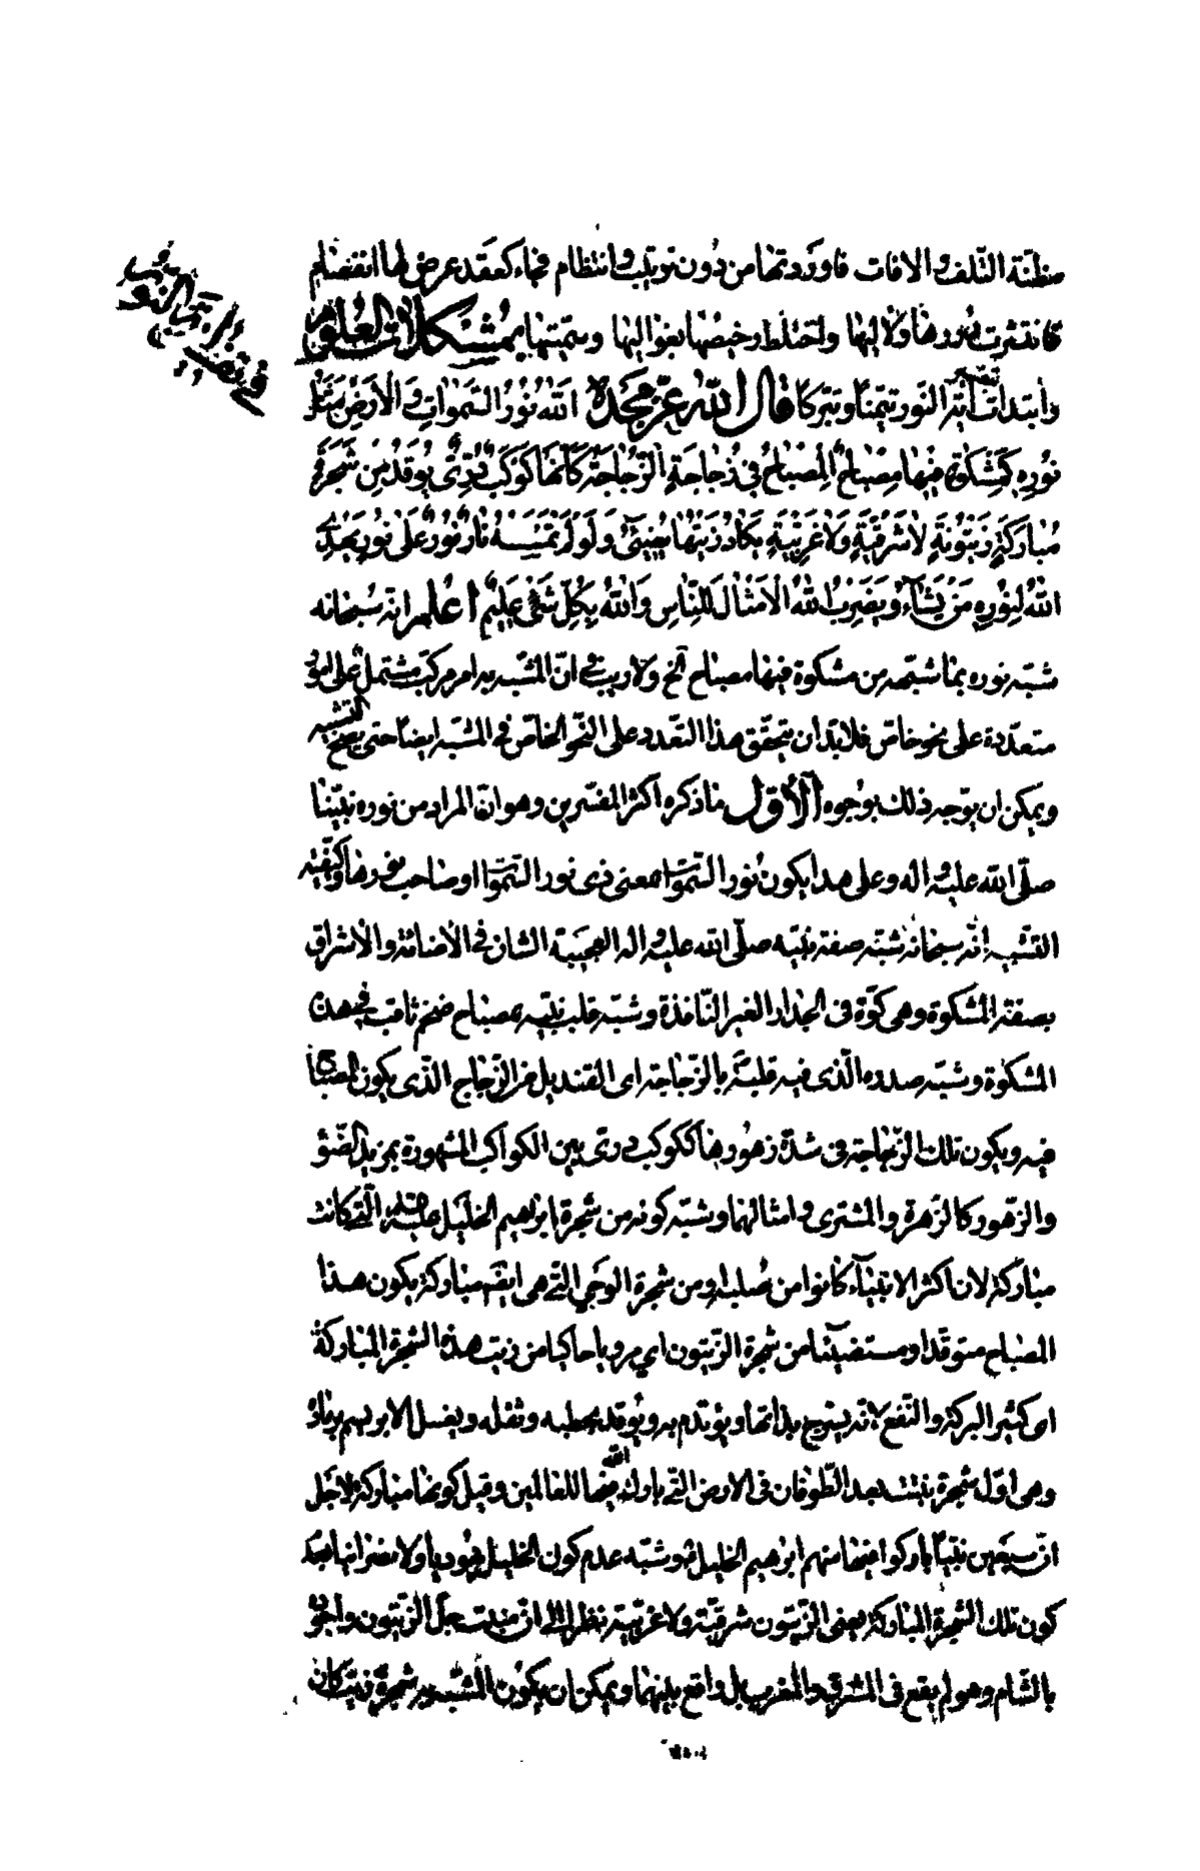 مظنّة التّلف والافات فاوردتها من دون ترتيب وانتظام فجاء كعقد عرض لها انفصام
فانتثرت دررها ولاليها واختلط رخيصها بغواليها وسمّيتها بمشكلات العلوم
وابتدات بتفسير آية النّور تيمّنا وتبركا قال الله عزّ مجده اَللهُ نُورُ السَّمٰوَاتِ وَالْاَرْضِ مَثَلُ
نُورِهِ كَمِشْكٰوةٍ فيٖهَا مِصْبَاحٌ اَلْمِصْبَاحُ فِي زُجَاجَةٍ اَلزُّجَاجَةُ كَاَنَّهَا كَوْكَبٌ دُرِّيٌّ يُوقَدُ مِنْ شَجَرَةٍ
مُبَارَكَةٍ زَيْتُونَةٍ لَا شَرْقِيَّةٍ وَلَا غَرْبِيَّةٍ يَكَادُ زَيْتُهَا يُضِيٓئُ وَلَوْ لَمْ تَمْسَسْهُ نَارٌ نُورٌ عَلٰى نُورٍ يَهْدِي
اللهُ لِنُورِهِ مَنْ يَشَآءُ وَيَضْرِبُ اللهُ الْاَمْثَالَ لِلنَّاسِ وَاللهُ بِكُلِّ شَيْءٍ عَلِيمٌ اعلم انّه سبحانه
شبّه نوره بما شبّهه من مشكوة فيها مصباح الخ ولا ريب في انّ المشبّه به امر مركّب مشتمل على امور
متعدّدة على نحو خاصّ فلا بدّ ان يتحقّق هذا التعدد على النّحو الخاصّ في المشبّه ايضا حتى يصحّ التشبيه
ويمكن ان يوجّه ذلك بوجوه الأوّل ما ذكره اكثر المفسّرين وهو انّ المراد من نوره نبيّنا
صلّى الله عليه واله وعلى هذا يكون نور السّموات بمعنى ذى نور السّموات او صاحب نورها وكيفيّة
التشبيه انّه سبحانه شبّه صفة نبيّه صلّى الله عليه واله العجيبة الشان في الاضائة والاشراق
بصفة المشكوة وهى كوّة فى الجدار الغير النّافذة وشبّه قلب نبيّه بمصباح ضخم ثاقب في هذه
المشكوة وشبّه صدره الّذى فيه قلبه بالزّجاجة اى القنديل من الزّجاج الّذى يكون المصباح
فيه ويكون تلك الزّجاجة فى شدّة زهورها ككوكب درّى بين الكواكب المشهورة بمزيد الضّوء
والزّهور كالزّهرة والمشترى وامثالهما وشبّه كونه من شجرة ابرهيم الخليل عليه السلام الّتى كانت
مباركة لان اكثر الانبياء كانوا من صلبه او من شجرة الوحي الّتى هى ايضا مباركة بكون هذا
المصباح متوقّدا ومستضيئا من شجرة الزّيتون اى مرويا حاكيا من زيت هذه الشجرة المباركة
اى كثير البركة والنّفع لانّه يسرج بدهنها ويؤتدم به ويوقد بحطبه وثفله ويغسل الابريسم برماده
وهى اوّل شجرة نبتت بعد الطّوفان فى الارض الّتى بارك الله فيها للعالمين وقيل كونها مباركة لاجل
انّ سبعين نبيّا باركوا فيها منهم ابرهيم الخليل ع وشبّه عدم كون الخليل يهوديا ولا نصرانيا بعدم
كون تلك الشجرة المباركة يعنى الزّيتون شرقيّة ولا غربيّة نظرا الى انّ منبت جلّ الزّيتون واجوده
بالشّام وهو لم يقع فى المشرق والمغرب بل واقع بينهما ويمكن ان يكون المشبّه به شجرة زيت كان
في تفسير
اية النور